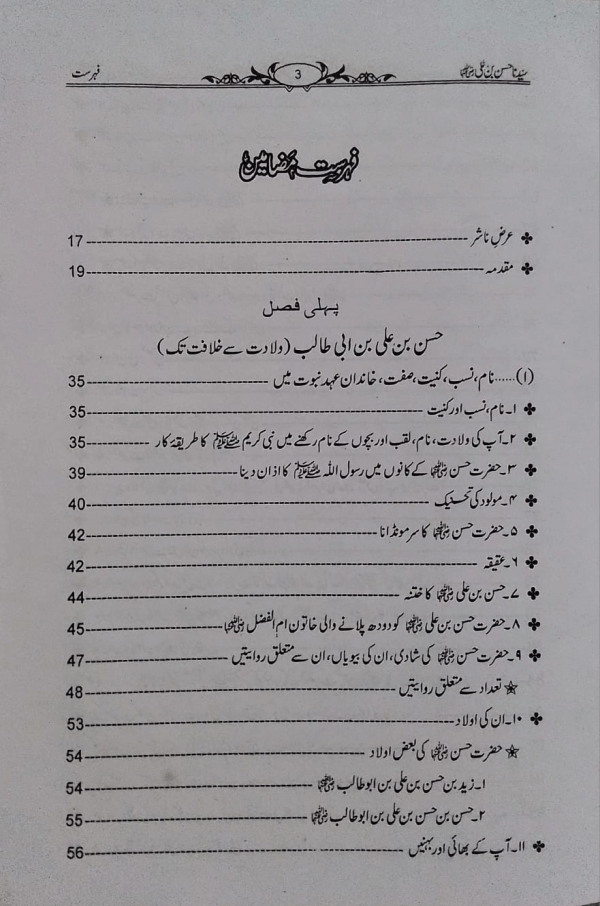 سیدنا حسن بن علی رضی اللہ عنہما 3 فہرست
فہرست مضامین
✤ عرضِ ناشر 17
✤ مقدمہ 19
پہلی فصل
حسن بن علی بن ابی طالب (ولادت سے خلافت تک)
(۱)......نام، نسب، کنیت، صفت، خاندان عہد نبوت میں 35
✤ ۱۔ نام، نسب اور کنیت 35
✤ ۲۔ آپ کی ولادت، نام، لقب اور بچوں کے نام رکھنے میں نبی کریم ﷺ کا طریقۂ کار 35
✤ ۳۔ حضرت حسن رضی اللہ عنہ کے کانوں میں رسول اللہ ﷺ کا اذان دینا 39
✤ ۴۔ مولود کی تحنیک 40
✤ ۵۔ حضرت حسن رضی اللہ عنہ کا سر مونڈانا 42
✤ ۶۔ عقیقہ 42
✤ ۷۔ حسن بن علی رضی اللہ عنہما کا ختنہ 44
✤ ۸۔ حضرت حسن بن علی رضی اللہ عنہما کو دودھ پلانے والی خاتون ام الفضل رضی اللہ عنہا 45
✤ ۹۔ حضرت حسن رضی اللہ عنہ کی شادی، ان کی بیویاں، ان سے متعلق روایتیں 47
✯ تعداد سے متعلق روایتیں 48
✤ ۱۰۔ ان کی اولاد 53
✯ حضرت حسن رضی اللہ عنہ کی بعض اولاد 54
۱۔ زید بن حسن بن علی بن ابو طالب رضی اللہ عنہما 54
۲۔ حسن بن حسن بن علی بن ابو طالب رضی اللہ عنہما 55
✤ ۱۱۔ آپ کے بھائی اور بہنیں 56